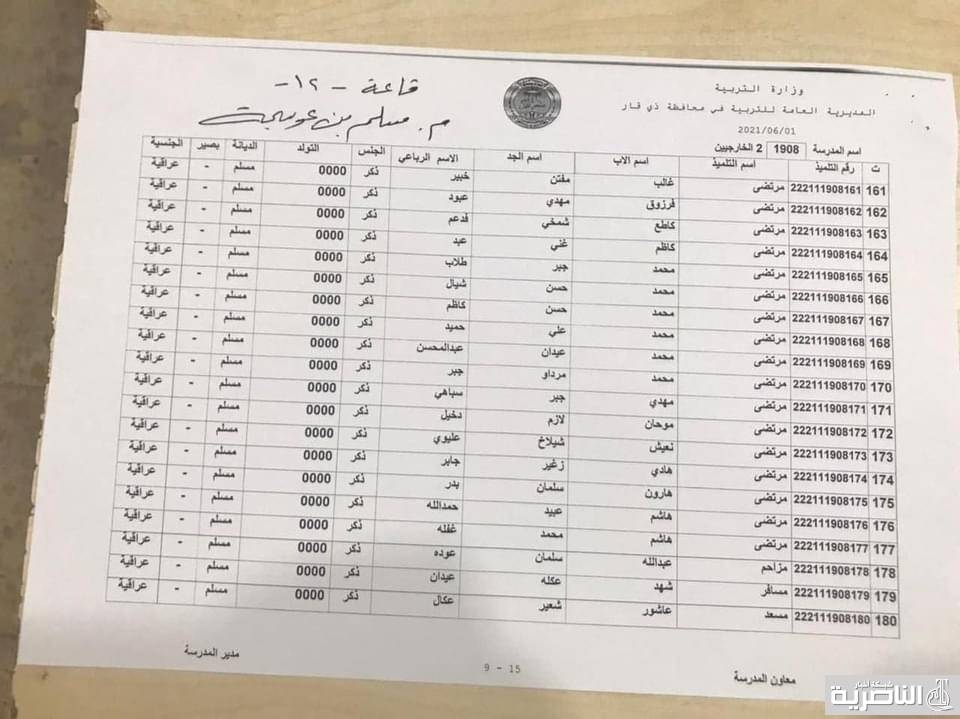 قاعة - ١٢ -
م. مسلم بن عوسجة
وزارة التربية
المديرية العامة للتربية في محافظة ذي قار
2021/06/01
اسم المدرسة 1908 2 الخارجيين
ت رقم التلميذ اسم التلميذ اسم الاب اسم الجد الاسم الرباعي الجنس التولد الديانة بصير الجنسية
161 222111908161 مرتضى غالب مفتن خبير ذكر 0000 مسلم - عراقية
162 222111908162 مرتضى فرزوق مهدي عبود ذكر 0000 مسلم - عراقية
163 222111908163 مرتضى كاطع شمخي فدعم ذكر 0000 مسلم - عراقية
164 222111908164 مرتضى كاظم غني عبد ذكر 0000 مسلم - عراقية
165 222111908165 مرتضى محمد جبر طلاب ذكر 0000 مسلم - عراقية
166 222111908166 مرتضى محمد حسن شيال ذكر 0000 مسلم - عراقية
167 222111908167 مرتضى محمد حسن كاظم ذكر 0000 مسلم - عراقية
168 222111908168 مرتضى محمد علي حميد ذكر 0000 مسلم - عراقية
169 222111908169 مرتضى محمد عيدان عبدالمحسن ذكر 0000 مسلم - عراقية
170 222111908170 مرتضى محمد مرداو جبر ذكر 0000 مسلم - عراقية
171 222111908171 مرتضى مهدي جبر سباهي ذكر 0000 مسلم - عراقية
172 222111908172 مرتضى موحان لازم دخيل ذكر 0000 مسلم - عراقية
173 222111908173 مرتضى نعيش شيلاخ عليوي ذكر 0000 مسلم - عراقية
174 222111908174 مرتضى هادي زغير جابر ذكر 0000 مسلم - عراقية
175 222111908175 مرتضى هارون سلمان بدر ذكر 0000 مسلم - عراقية
176 222111908176 مرتضى هاشم عبيد حمدالله ذكر 0000 مسلم - عراقية
177 222111908177 مرتضى هاشم محمد غفله ذكر 0000 مسلم - عراقية
178 222111908178 مزاحم عبدالله سلمان عوده ذكر 0000 مسلم - عراقية
179 222111908179 مسافر شهد عكله عيدان ذكر 0000 مسلم - عراقية
180 222111908180 مسعد عاشور شعير عكال ذكر 0000 مسلم - عراقية
معاون المدرسة
9 - 15
مدير المدرسة
شبكة أخبار
الناصرية